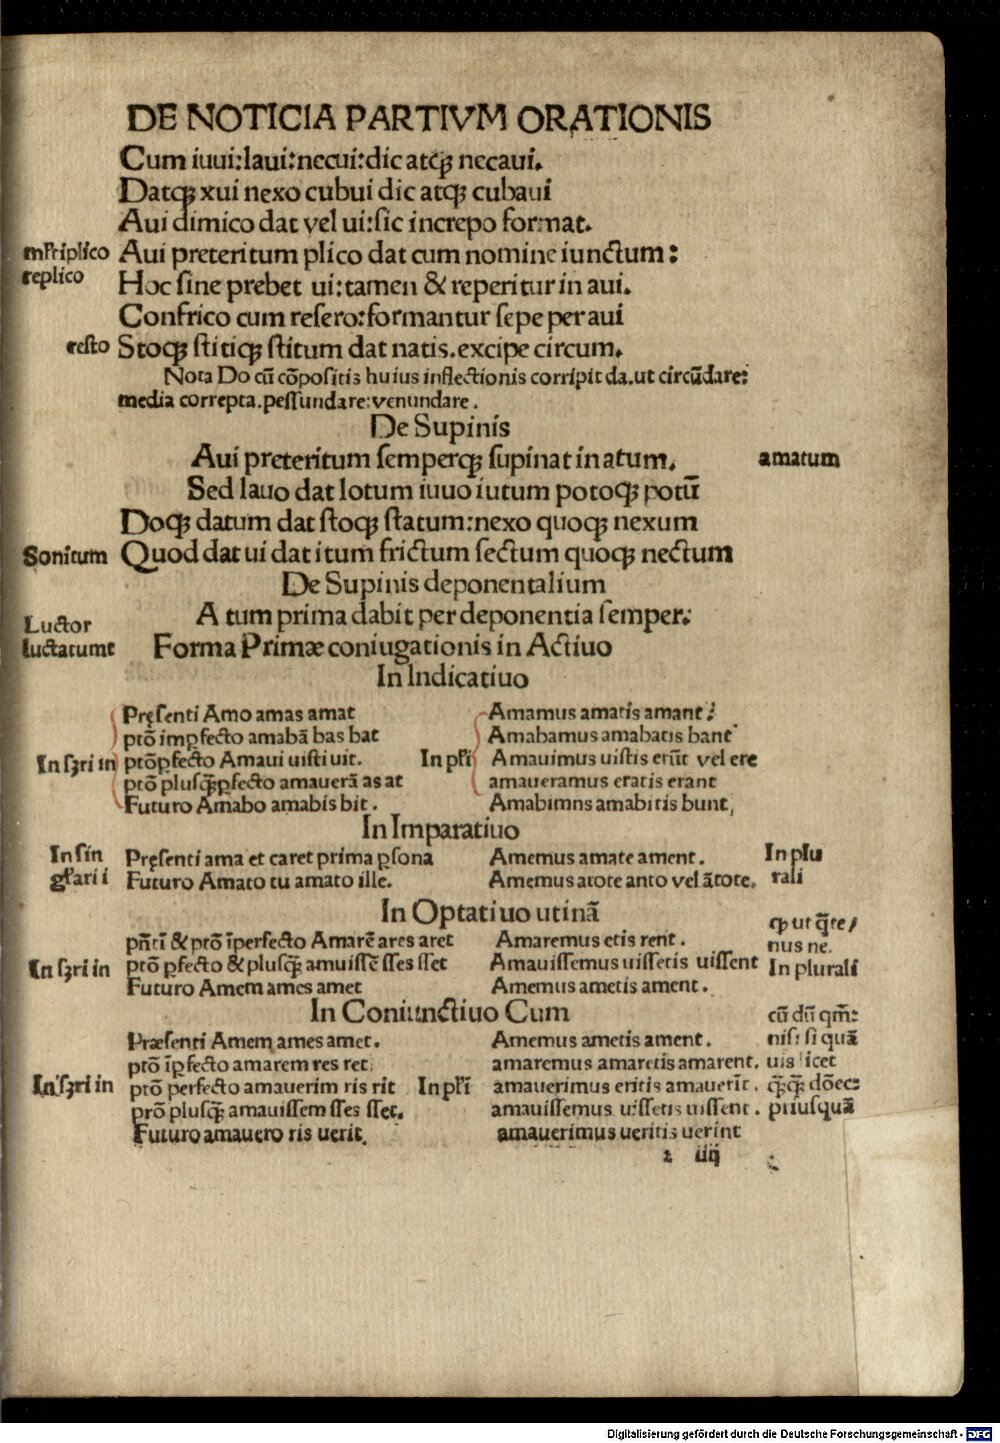 DE NOTICIA PARTIVM ORATIONIS
Cum iuui:laui:necui:dic atqꝫ necaui.
Datqꝫ xui nexo cubui dic atqꝫ cubaui
Aui dimico dat vel ui:sic increpo format.
mĺtiplico Aui preteritum plico dat cum nomine iunctum:
replico Hoc sine prebet ui:tamen & reperitur in aui.
Confrico cum resero:formantur sepe per aui
resto Stoqꝫ stitiqꝫ stitum dat natis.excipe circum.
Nota Do cū cōpositis huius inflectionis corripit da.ut circūdare:
media correpta.pessundare:venundare.
De Supinis
Aui preteritum semperqꝫ supinat in atum. amatum
Sed lauo dat lotum iuuo iutum potoqꝫ potū
Doqꝫ datum dat stoqꝫ statum:nexo quoqꝫ nexum
Sonitum Quod dat ui dat itum frictum sectum quoqꝫ nectum
De Supinis deponentalium
A tum prima dabit per deponentia semper:
Luctor
luctatume Forma Primæ coniugationis in Actiuo
In Indicatiuo
Pręsenti Amo amas amat Amamus amatis amant:
ptō impfecto amabā bas bat Amabamus amabatis bant
In sꝫri in ptōpfecto Amaui uisti uit. In pĺi Amauimus uistis erūt vel ere
ptō plusqꝫpfecto amauerā as at amaueramus eratis erant
Futuro Amabo amabis bit. Amabimns amabitis bunt,
In Imparatiuo
In sin Pręsenti ama et caret prima psona Amemus amate ament. In plu
gĺari i Futuro Amato tu amato ille. Amemus atote anto vel ātote. rali
In Optatiuo utinā
ꝙ ut q̄re/
pn̄ti & ptō īperfecto Amarē ares aret Amaremus etis rent. nus ne.
In sꝫri in ptō pfecto & plusq̄ amuissē sses sset Amauissemus uissetis uissent In plurali
Futuro Amem ames amet Amemus ametis ament.
In Coniunctiuo Cum cū dū qm̄:
Præsenti Amem ames amet. Amemus ametis ament. nisi si quā
ptō īpfecto amarem res ret. amaremus amaretis amarent. uis licet
In sꝫri in ptō perfecto amauerim ris rit In pĺi amauerimus eritis amauerīt. q̄q̄ dōec:
ptō plusq̄ amauissem sses sset. amauissemus uissetis uissent. priusquā
Futuro amauero ris uerit. amauerimus ueritis uerint
2 iiij
Digitalisierung gefördert durch die Deutsche Forschungsgemeinschaft - DFG